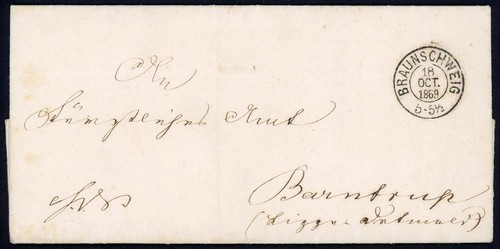 An
BRAUNSCHWEIG
18
OCT.
1869
5-5½
Fürstliches Amt
Barntrup
(Lippe-Detmold)